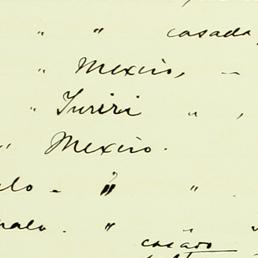 " " casada,
" Mexico, —
" Yuriri " ,
" Mexico.
lo - " "
nalo. " "
casado